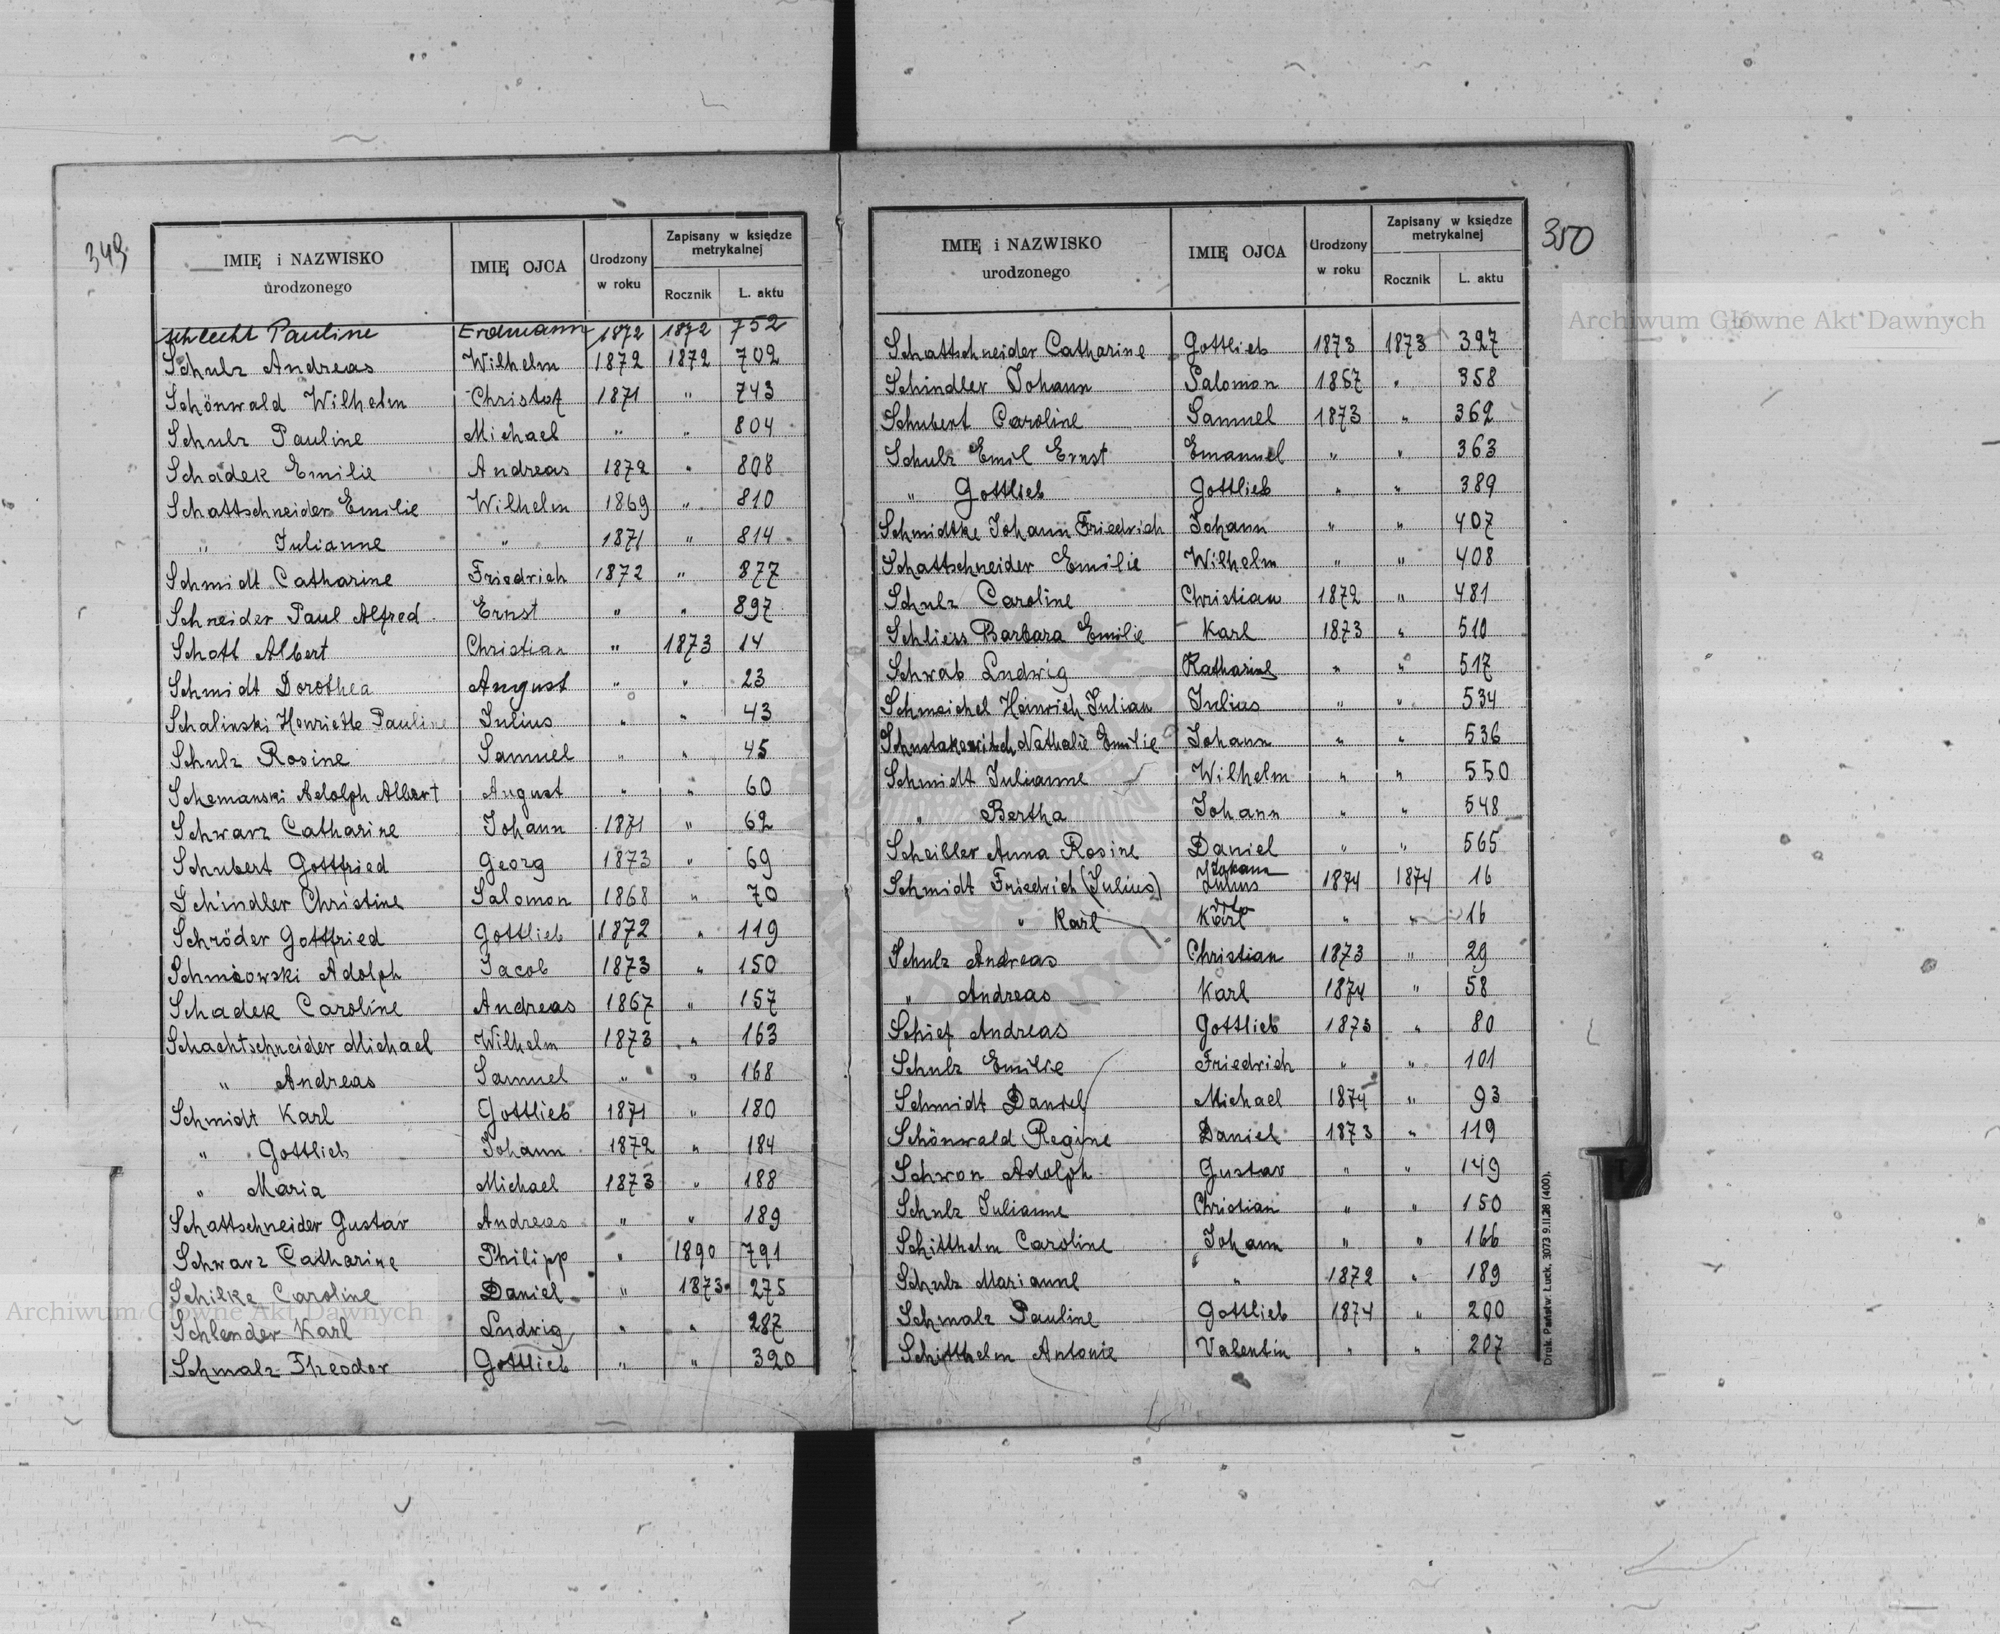 349
IMIĘ i NAZWISKO urodzonego | IMIĘ OJCA | Urodzony w roku | Zapisany w księdze metrykalnej
Rocznik | L. aktu
Schlecht Pauline | Erdmann | 1872 | 1872 | 752
Schulz Andreas | Wilhelm | 1872 | 1872 | 702
Schönwald Wilhelm | Christof | 1871 | " | 743
Schulz Pauline | Michael | " | " | 804
Schadek Emilie | Andreas | 1872 | " | 808
Schattschneider Emilie | Wilhelm | 1869 | " | 810
" Julianne | " | 1871 | " | 814
Schmidt Catharine | Friedrich | 1872 | " | 877
Schneider Paul Alfred | Ernst | " | " | 897
Schott Albert | Christian | " | 1873 | 14
Schmidt Dorothea | August | " | " | 23
Schalinski Henriette Pauline | Julius | " | " | 43
Schulz Rosine | Samuel | " | " | 45
Schemanski Adolph Albert | August | " | " | 60
Schwarz Catharine | Johann | 1871 | " | 62
Schubert Gottfried | Georg | 1873 | " | 69
Schindler Christine | Salomon | 1868 | " | 70
Schröder Gottfried | Gottlieb | 1872 | " | 119
Adolph | Jacob | 1873 | " | 150
Schadek Caroline | Andreas | 1867 | " | 157
Schachtschneider Michael | Wilhelm | 1873 | " | 163
" Andreas | Samuel | " | " | 168
Schmidt Karl | Gottlieb | 1871 | " | 180
" Gottlieb | Johann | 1872 | " | 184
" Maria | Michael | 1873 | " | 188
Schattschneider Gustav | Andreas | " | " | 189
Schwarz Catharine | Philipp | " | 1890 | 791
Schilke Caroline | Daniel | " | 1873 | 275
Schlender Karl | Ludwig | " | " | 287
Schmalz Theodor | Gottlieb | " | " | 320
350
IMIĘ i NAZWISKO urodzonego | IMIĘ OJCA | Urodzony w roku | Zapisany w księdze metrykalnej
Rocznik | L. aktu
Schattschneider Catharine | Gottlieb | 1873 | 1873 | 327
Schindler Johann | Salomon | 1867 | " | 358
Schubert Caroline | Samuel | 1873 | " | 362
Schulz Emil Ernst | Emanuel | " | " | 363
" Gottlieb | Gottlieb | " | " | 389
Schmidtke Johann Friedrich | Johann | " | " | 407
Schattschneider Emilie | Wilhelm | " | " | 408
Schulz Caroline | Christian | 1872 | " | 481
Schliess Barbara Emilie | Karl | 1873 | " | 510
Schwab Ludwig | Katharine | " | " | 517
Schmeichel Heinrich Julian | Julius | " | " | 534
Nathalie Emilie | Johann | " | " | 536
Schmidt Julianne | Wilhelm | " | " | 550
" Bertha | Johann | " | " | 548
Scheibler Anna Rosine | Daniel | " | " | 565
Schmidt Friedrich (Julius) | Johann Julius | 1874 | 1874 | 16
" Karl | dto Karl | " | " | 16
Schulz Andreas | Christian | 1873 | " | 29
" Andreas | Karl | 1874 | " | 58
Schief Andreas | Gottlieb | 1873 | " | 80
Schulz Emilie | Friedrich | " | " | 101
Schmidt Daniel | Michael | 1874 | " | 93
Schönwald Regine | Daniel | 1873 | " | 119
Schwon Adolph | Gustav | " | " | 149
Schulz Julianne | Christian | " | " | 150
Schitthelm Caroline | Johann | " | " | 166
Schulz Marianne | " | 1872 | " | 189
Schmalz Pauline | Gottlieb | 1874 | " | 200
Schitthelm Antonie | Valentin | " | " | 207
Druk. Państw. Łuck. 3073 9.II.28 (400).
Archiwum Główne Akt Dawnych
Archiwum Główne Akt Dawnych